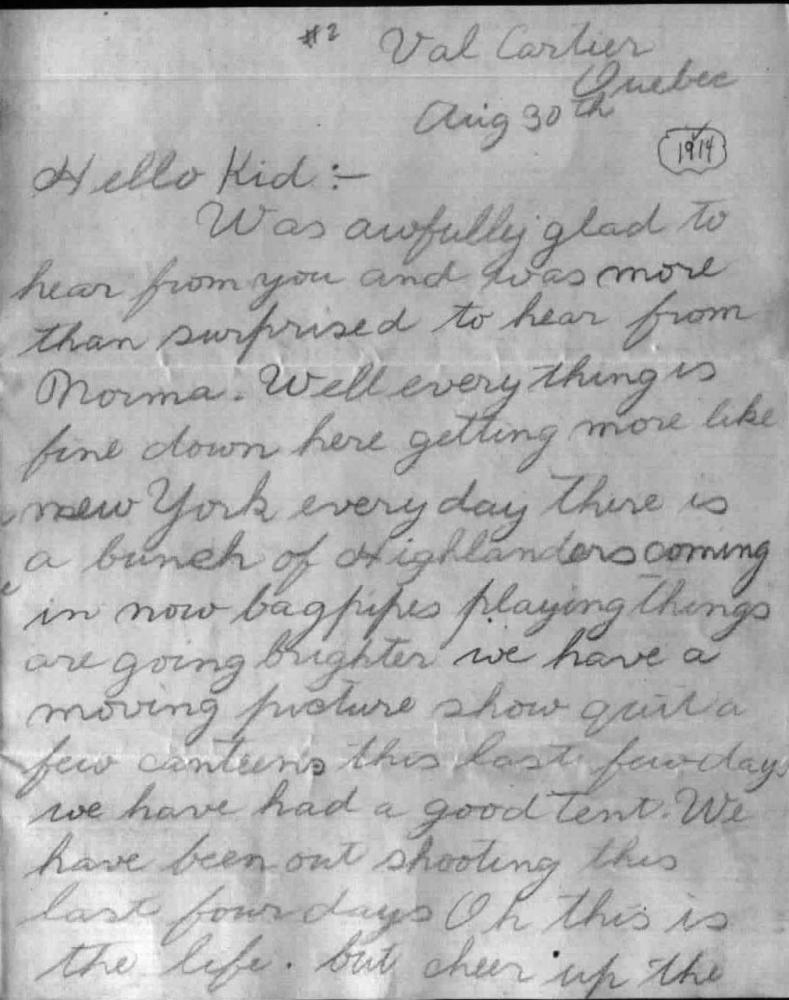 #2 Val Cartier
Quebec
Aug 30th
1914
Hello Kid :-
Was awfully glad to
hear from you and was more
than surprised to hear from
Norma. Well everything is
fine down here getting more like
new York every day there is
a bunch of Highlanders coming
in now bagpipes playing things
are going brighter we have a
moving picture show quit a
few canteens this last few days
we have had a good tent. We
have been out shooting this
last four days Oh this is
the life. but cheer up the